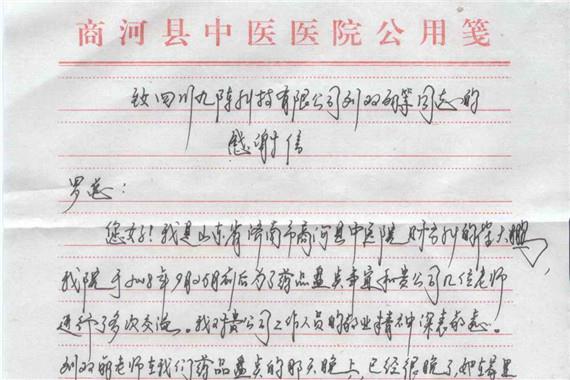 商河县中医医院公用笺
致四川九阵科技有限公司刘双丽等同志的
感谢信
罗总：
您好！我是山东省济南市商河县中医院财务科的
我院于2018年9月25月前后为了药品盘点事宜和贵公司几位老师
进行了多次交流。我对贵公司工作人员的敬业精神深表敬意。
刘双丽老师在我们药品盘点的那天晚上，已经很晚了，她